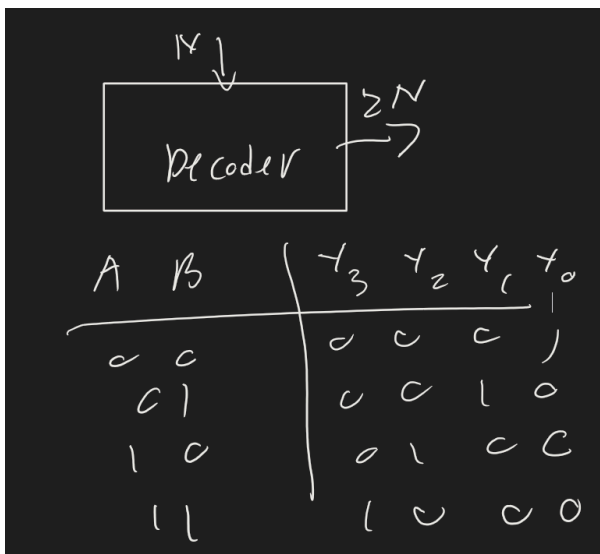 N
2N
Decoder
A B Y3 Y2 Y1 Y0
0 0 0 0 0 1
0 1 0 0 1 0
1 0 0 1 0 0
1 1 1 0 0 0